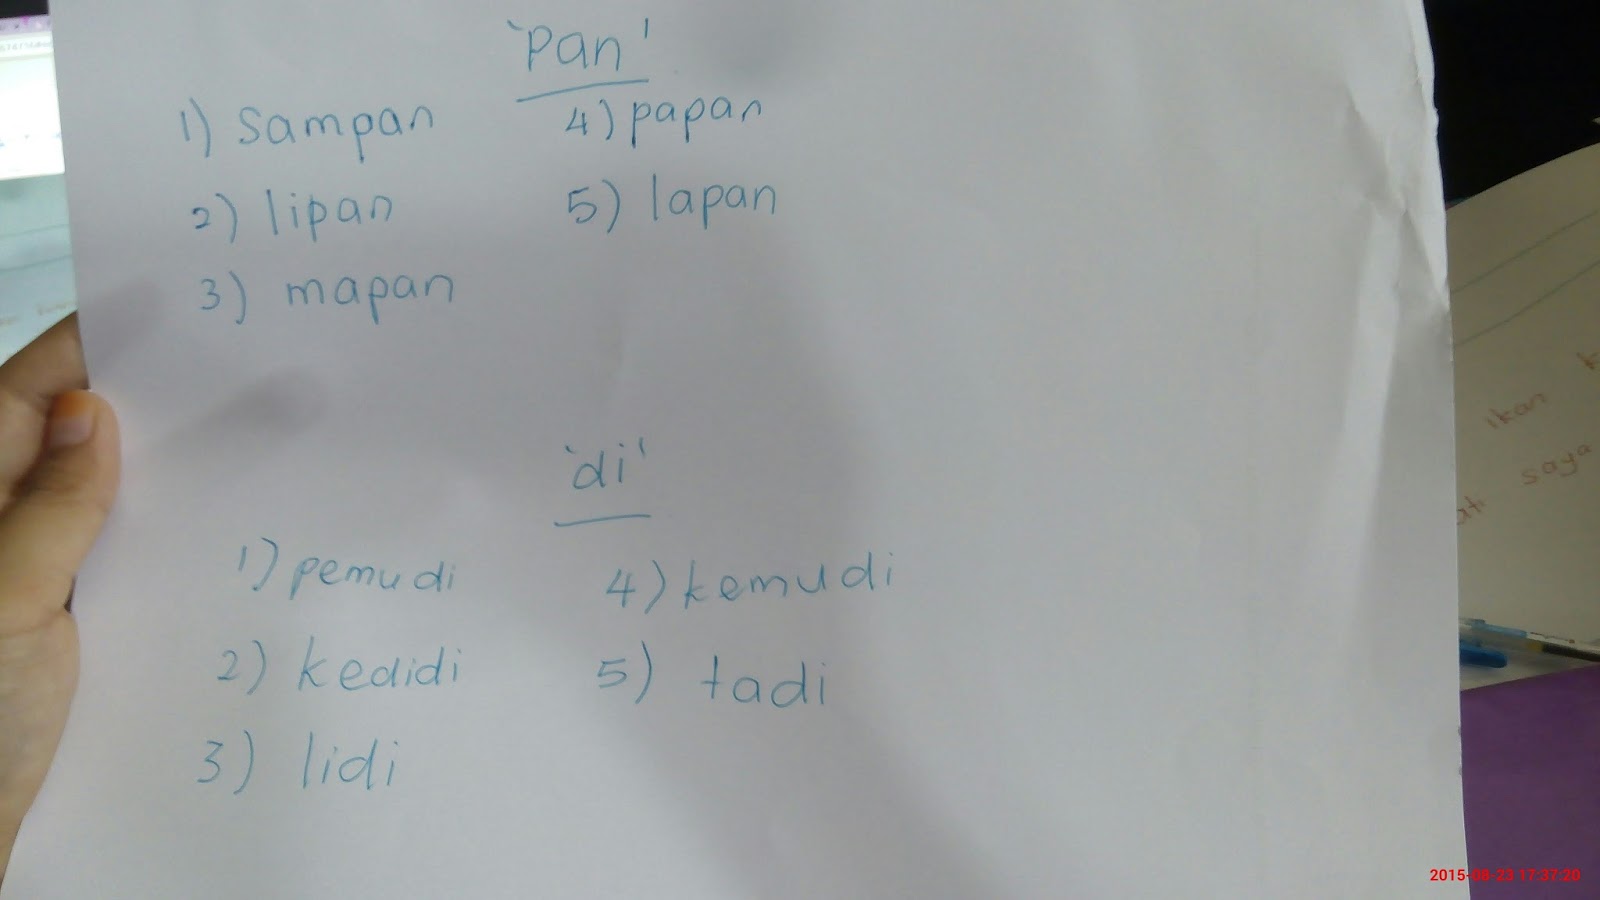 'Pan'
1) Sampan
2) lipan
3) mapan
4) papan
5) lapan
'di'
1) pemudi
2) kedidi
3) lidi
4) kemudi
5) tadi
ikan
saya
2015-08-23 17:37:20